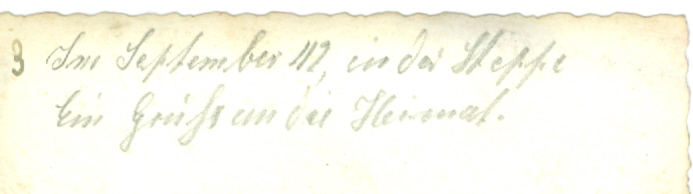 3 Im September 42, in der Steppe
Ein Gruß an die Heimat.